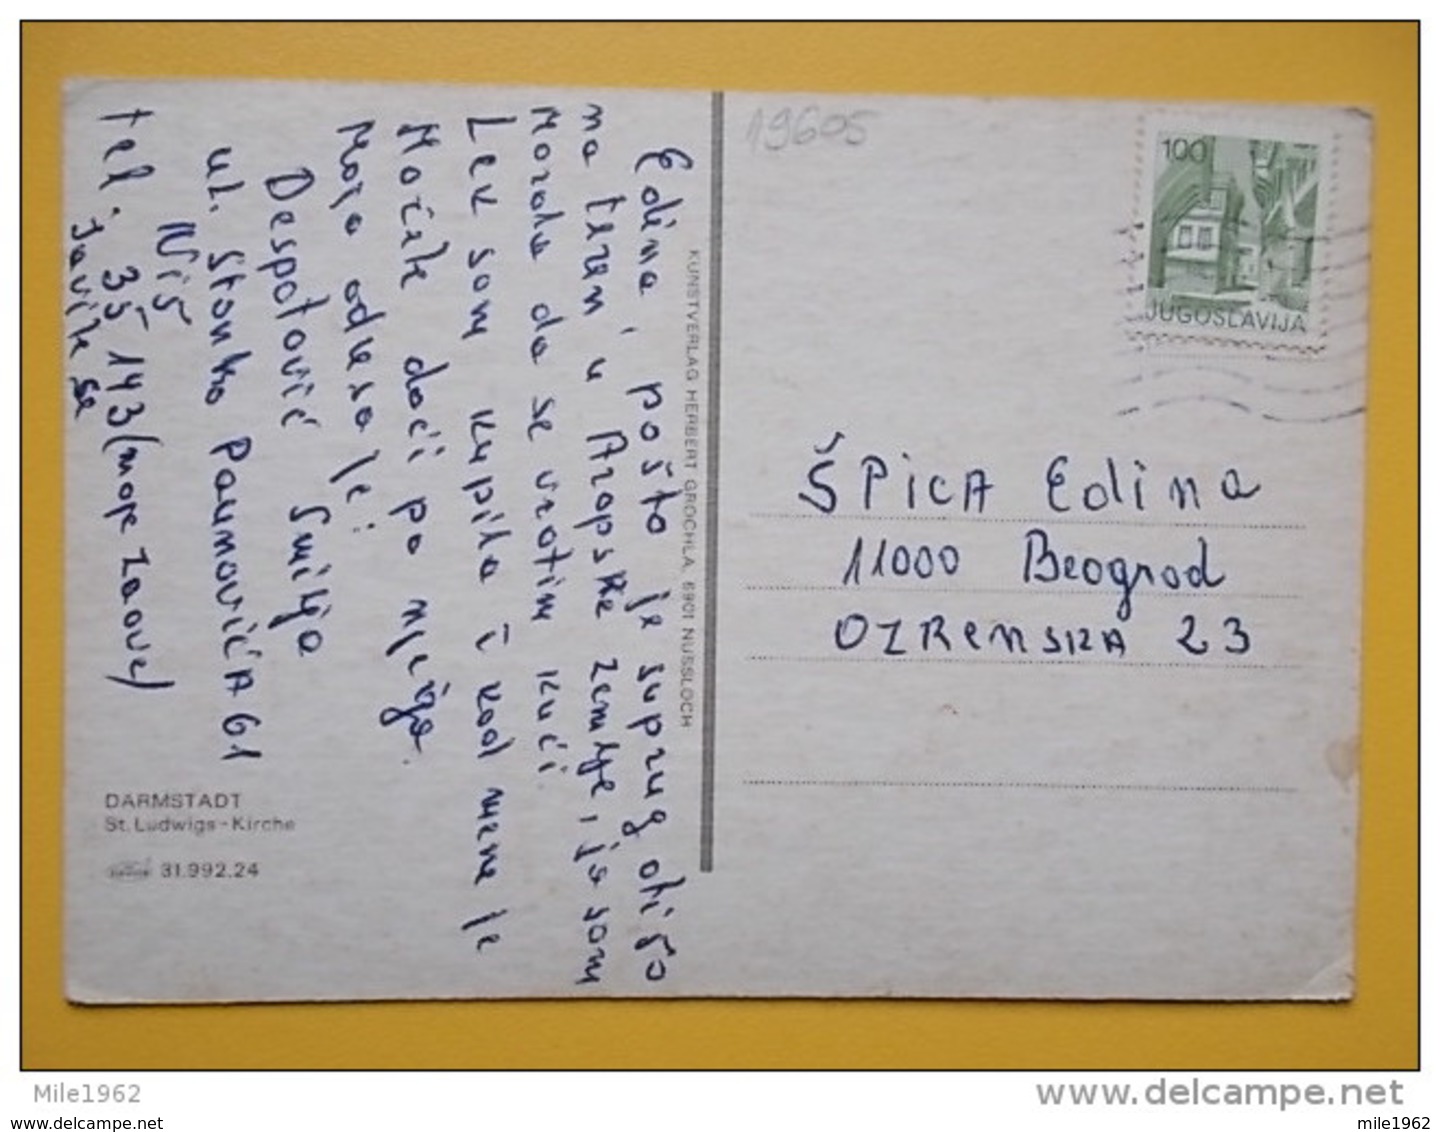 19605
100
JUGOSLAVIJA
Edina, pošto je suprug otišo
na teren u Arapske zemlje, ja sam
morala da se vratim kući
Lek sam kupila i kod mene je
Možete doći po njega.
Moja adresa je:
Despotović Smilja
ul. Stanka PaunovićA 61
Niš
tel. 35 143 (moje zaove)
Javite se
KUNSTVERLAG HERBERT GROCHLA, 6901 NUSSLOCH
ŠPICA Edina
11000 Beograd
OZRENSKA 23
DARMSTADT
St. Ludwigs-Kirche
31.992.24
Mile1962
www.delcampe.net
www.delcampe.net
mile1962